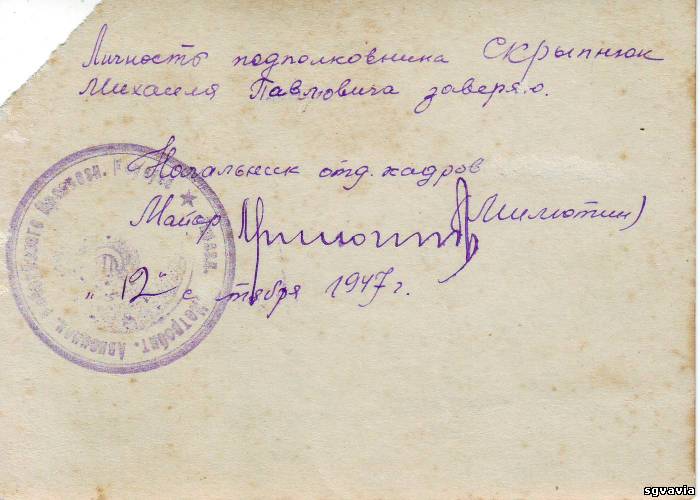 Личность подполковника Скрыпнюк
Михаила Павловича заверяю.
Начальник отд. кадров
Майор (Милютин)
"12" с тября 1947 г.
sgvavia